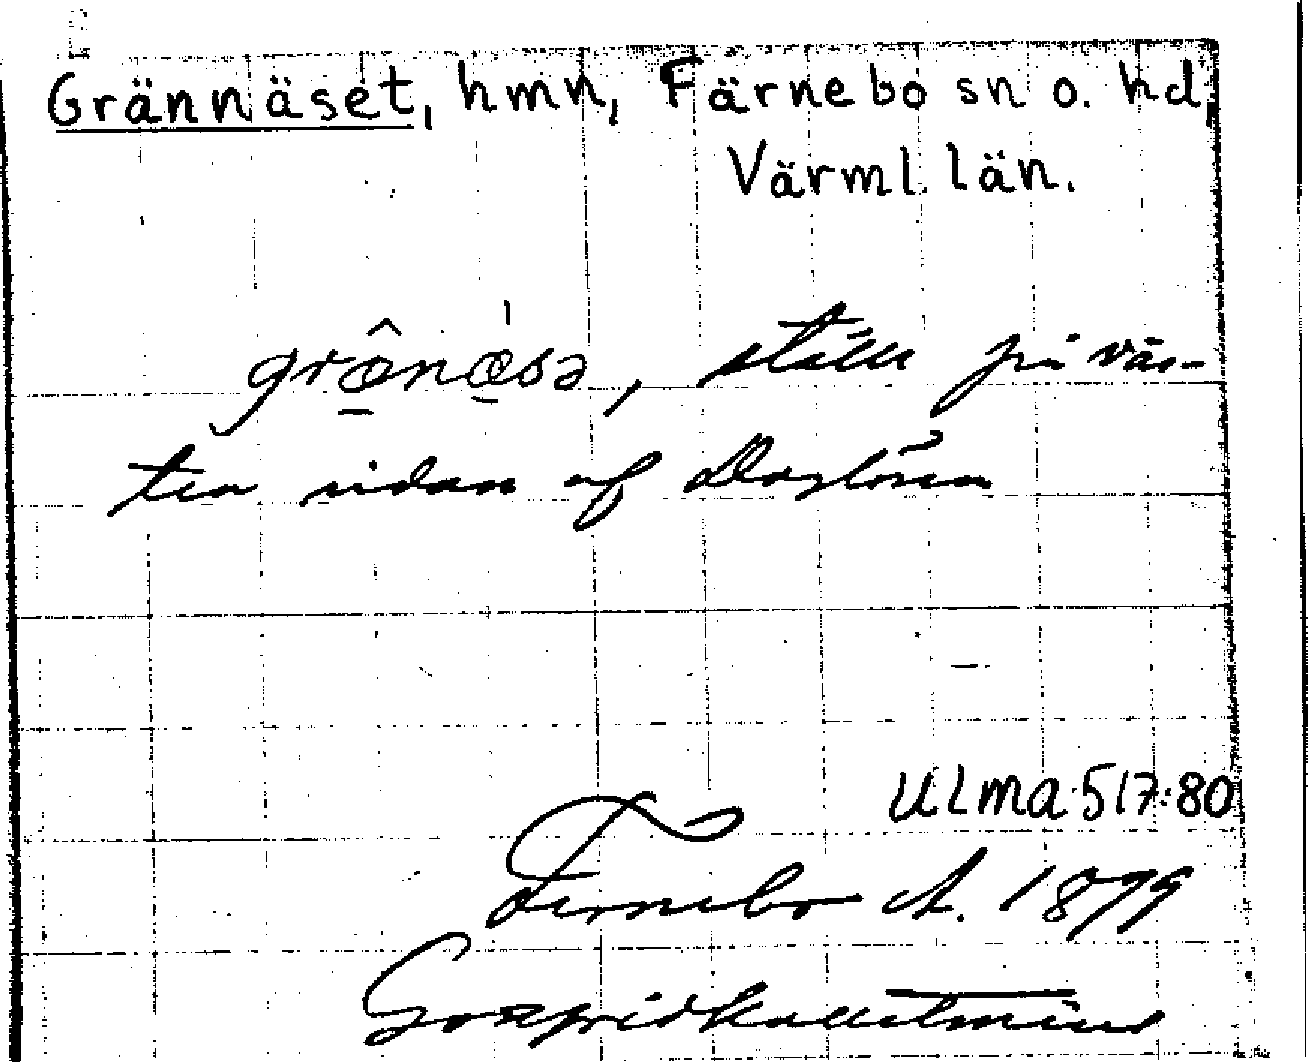 Grännäset, hmn, Färnebo sn o. hd,
Värml. län.
grœ̂nœ̀sə, ställe på väs-
tra sidan af Daglösen
ULMA 517:80
Fernebo A. 1899
Gottfrid Kallstenius